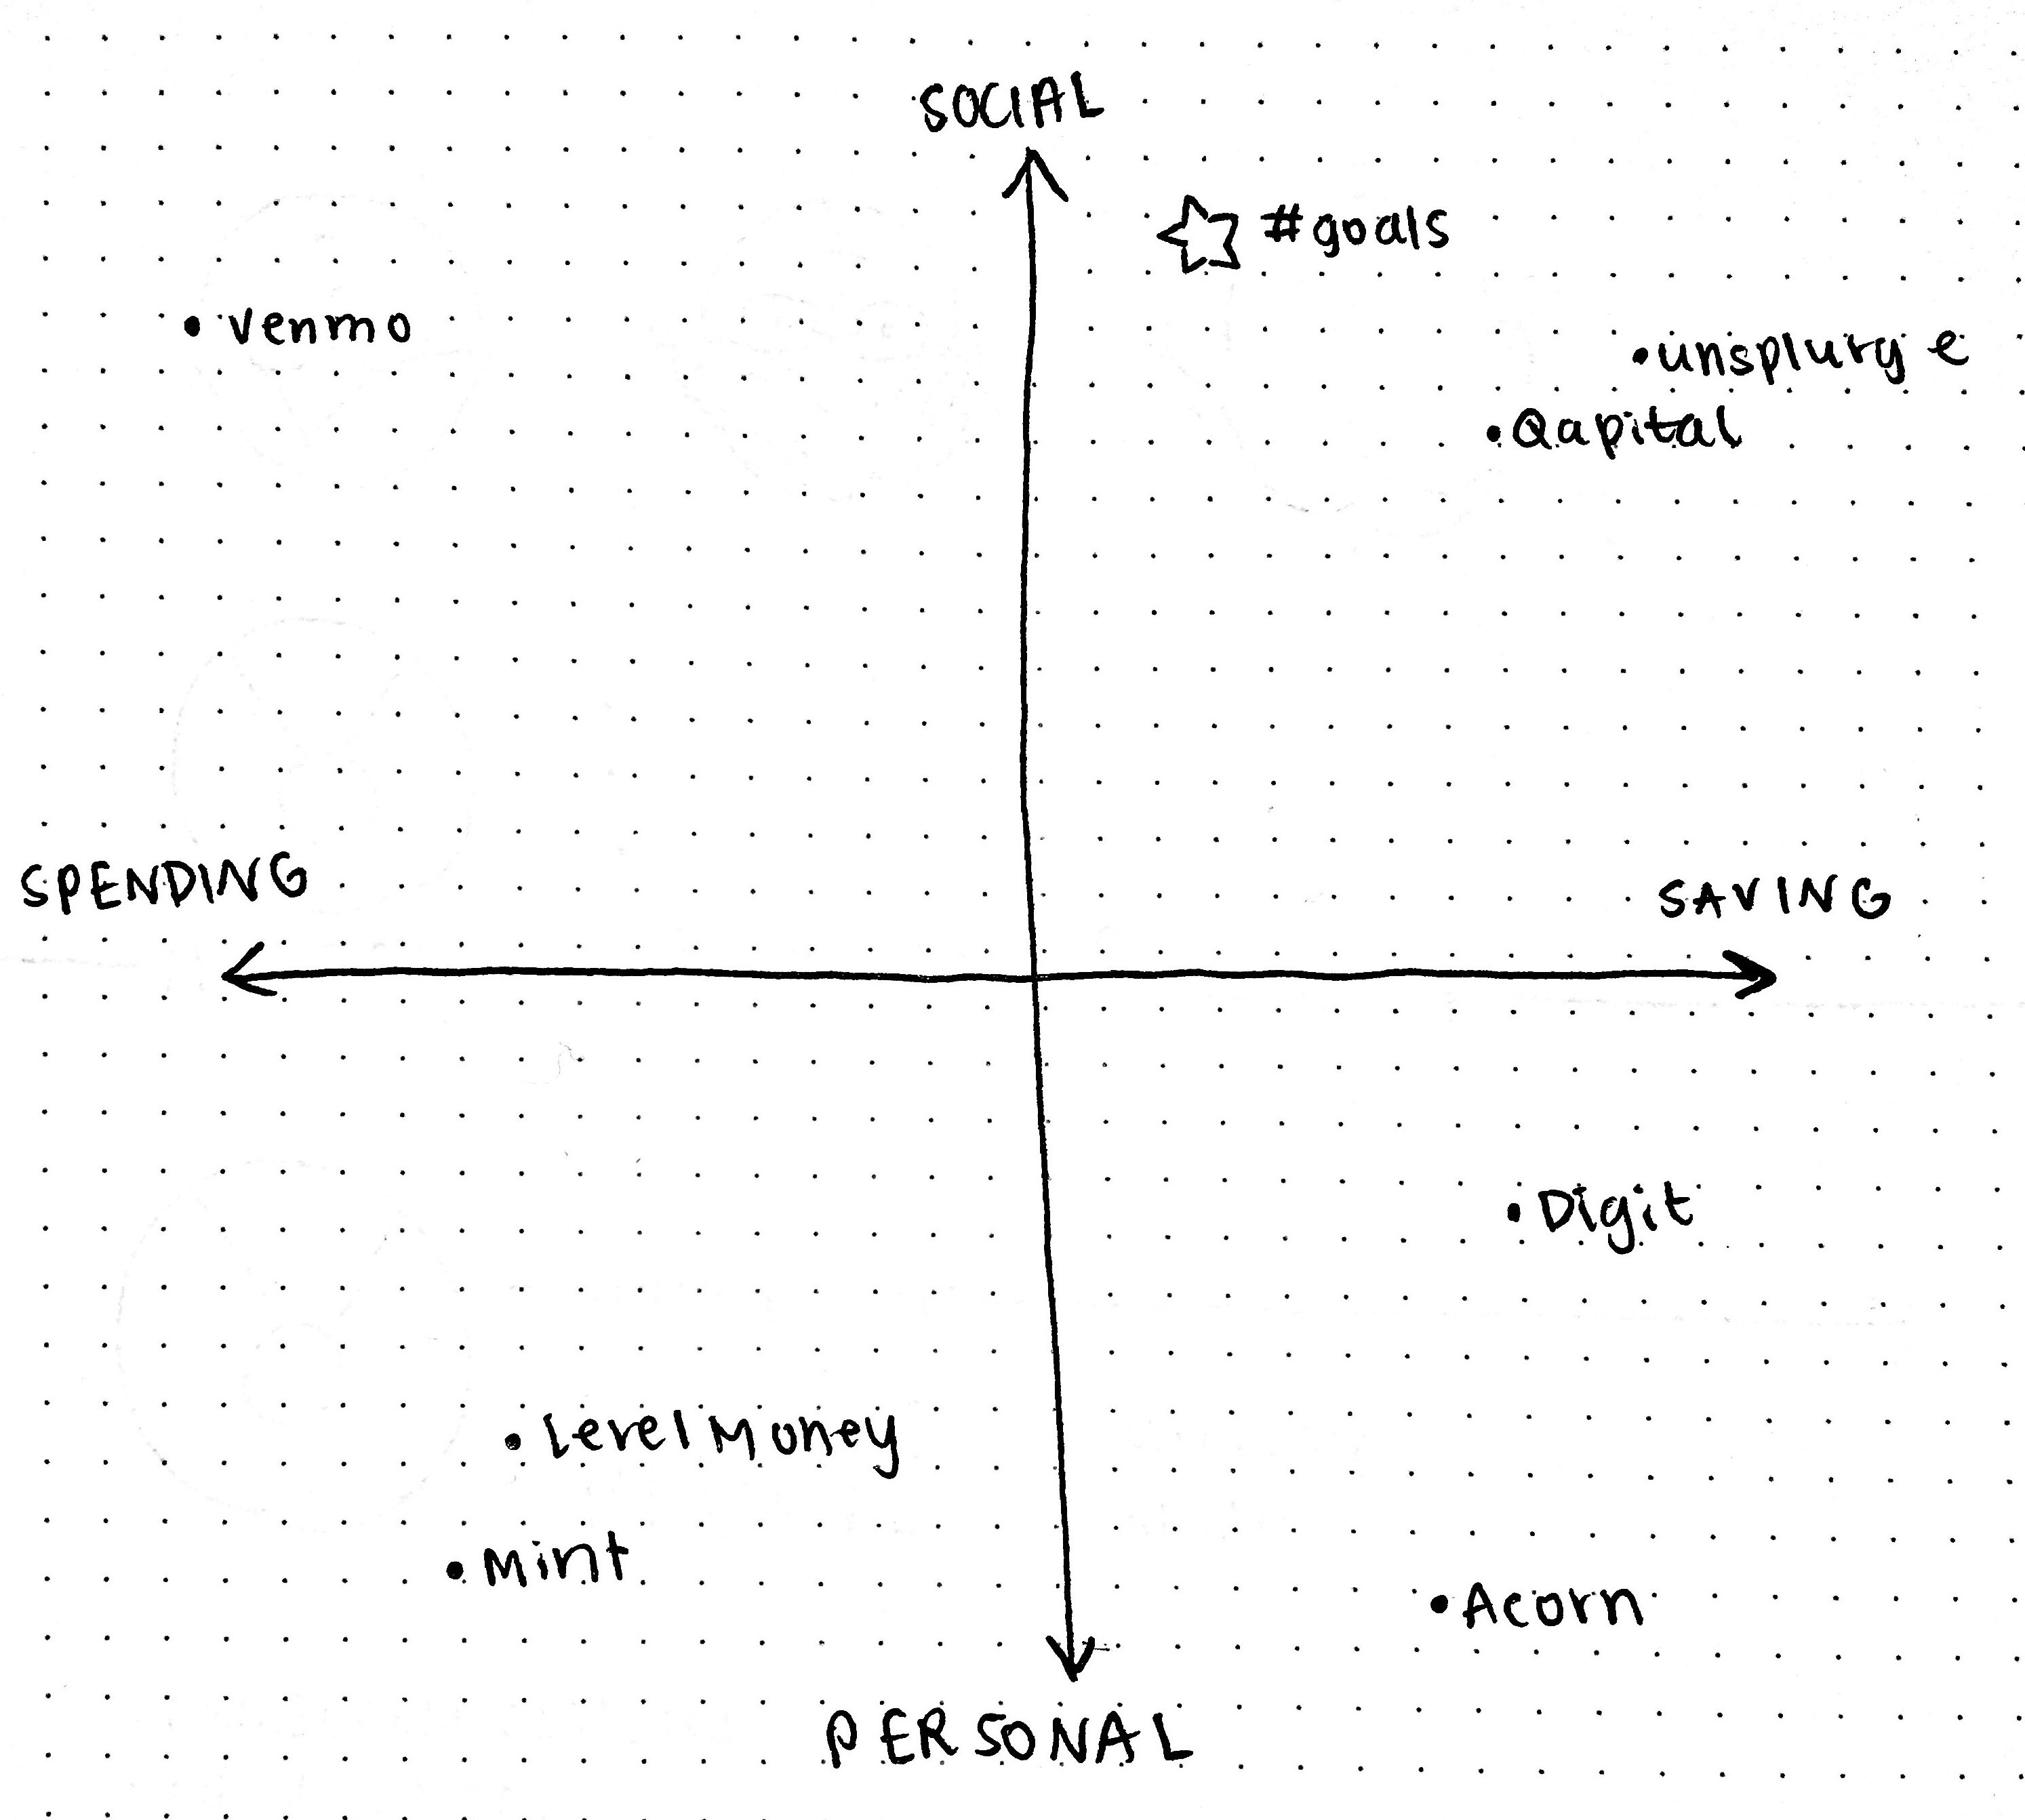 SOCIAL
#goals
venmo
unsplurge
Qapital
SPENDING
SAVING
Digit
Level Money
Mint
Acorn
PERSONAL